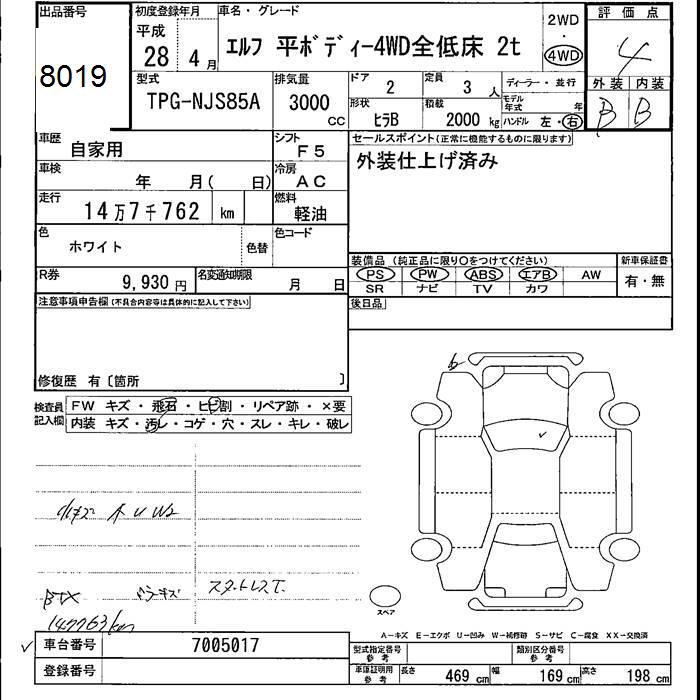 出品番号
8019
初度登録年月
平成
28年 4月
車名・グレード
エルフ 平ボディー4WD全低床 2t
2WD
・
4WD
評価点
4
型式
TPG-NJS85A
排気量
3000
CC
ドア 2
定員 3人
ディーラー・並行
モデル年式 年
形状 ヒラB
積載 2000 kg
ハンドル 左・右
外装 内装
B B
車歴
自家用
シフト
F5
セールスポイント(正常に機能するものに限ります)
外装仕上げ済み
車検
年 月( 日)
冷房
AC
走行
14万7千762 km
燃料
軽油
色
ホワイト
色替
色コード
装備品 (純正品に限り○をつけてください)
新車保証書
PS PW ABS エアB AW
SR ナビ TV カワ
有・無
R券
9,930円
名変通知期限
月 日
後日品
注意事項申告欄(不具合内容等は具体的に記入して下さい)
修復歴 有〔箇所 〕
検査員記入欄
FW キズ・飛石・ヒビ割・リペア跡・×要
内装 キズ・汚レ・コゲ・穴・スレ・キレ・破レ
スタットレスT.
147763km
スペア
A−キズ E−エクボ U−凹み W−補修跡 S−サビ C−腐食 XX−交換済
車台番号 7005017
登録番号
型式指定番号 参考
類別区分番号 参考
車庫証明用 参考
長さ 469 cm 幅 169 cm 高さ 198 cm